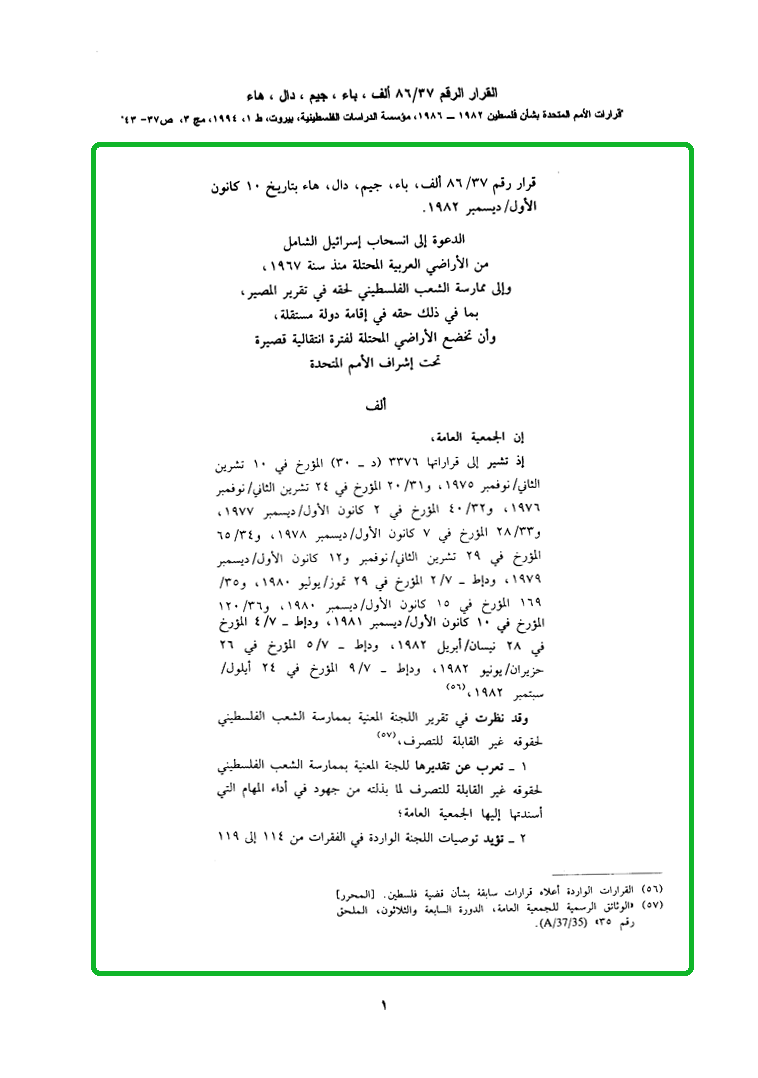 القرار الرقم ٨٦/٣٧ ألف ، باء ، جيم ، دال ، هاء
"قرارات الأمم المتحدة بشأن فلسطين ١٩٨٢ ــ ١٩٨٦، مؤسسة الدراسات الفلسطينية، بيروت، ط ١، ١٩٩٤، مج ٣، ص٣٧- ٤٣"
قرار رقم ٨٦/٣٧ ألف، باء، جيم، دال، هاء بتاريخ ١٠ كانون
الأول/ديسمبر ١٩٨٢.
الدعوة إلى انسحاب إسرائيل الشامل
من الأراضي العربية المحتلة منذ سنة ١٩٦٧،
وإلى ممارسة الشعب الفلسطيني لحقه في تقرير المصير،
بما في ذلك حقه في إقامة دولة مستقلة،
وأن تخضع الأراضي المحتلة لفترة انتقالية قصيرة
تحت إشراف الأمم المتحدة
ألف
إن الجمعية العامة،
إذ تشير إلى قراراتها ٣٣٧٦ (د ـ ٣٠) المؤرخ في ١٠ تشرين
الثاني/نوفمبر ١٩٧٥، و٢٠/٣١ المؤرخ في ٢٤ تشرين الثاني/نوفمبر
١٩٧٦، و٤٠/٣٢ المؤرخ في ٢ كانون الأول/ديسمبر ١٩٧٧،
و٢٨/٣٣ المؤرخ في ٧ كانون الأول/ديسمبر ١٩٧٨، و٦٥/٣٤
المؤرخ في ٢٩ تشرين الثاني/نوفمبر و١٢ كانون الأول/ديسمبر
١٩٧٩، ودإط ـ ٢/٧ المؤرخ في ٢٩ تموز/يوليو ١٩٨٠، و٣٥/
١٦٩ المؤرخ في ١٥ كانون الأول/ديسمبر ١٩٨٠، و١٢٠/٣٦
المؤرخ في ١٠ كانون الأول/ديسمبر ١٩٨١، ودإط ـ ٤/٧ المؤرخ
في ٢٨ نيسان/أبريل ١٩٨٢، ودإط ـ ٥/٧ المؤرخ في ٢٦
حزيران/يونيو ١٩٨٢، ودإط ـ ٩/٧ المؤرخ في ٢٤ أيلول/
سبتمبر ١٩٨٢،(٥٦)
وقد نظرت في تقرير اللجنة المعنية بممارسة الشعب الفلسطيني
لحقوقه غير القابلة للتصرف،(٥٧)
١ ـ تعرب عن تقديرها للجنة المعنية بممارسة الشعب الفلسطيني
لحقوقه غير القابلة للتصرف لما بذلته من جهود في أداء المهام التي
أسندتها إليها الجمعية العامة؛
٢ ـ تؤيد توصيات اللجنة الواردة في الفقرات من ١١٤ إلى ١١٩
(٥٦) القرارات الواردة أعلاه قرارات سابقة بشأن قضية فلسطين. [المحرر]
(٥٧) «الوثائق الرسمية للجمعية العامة، الدورة السابعة والثلاثون، الملحق
رقم ٣٥» (A/37/35).
١